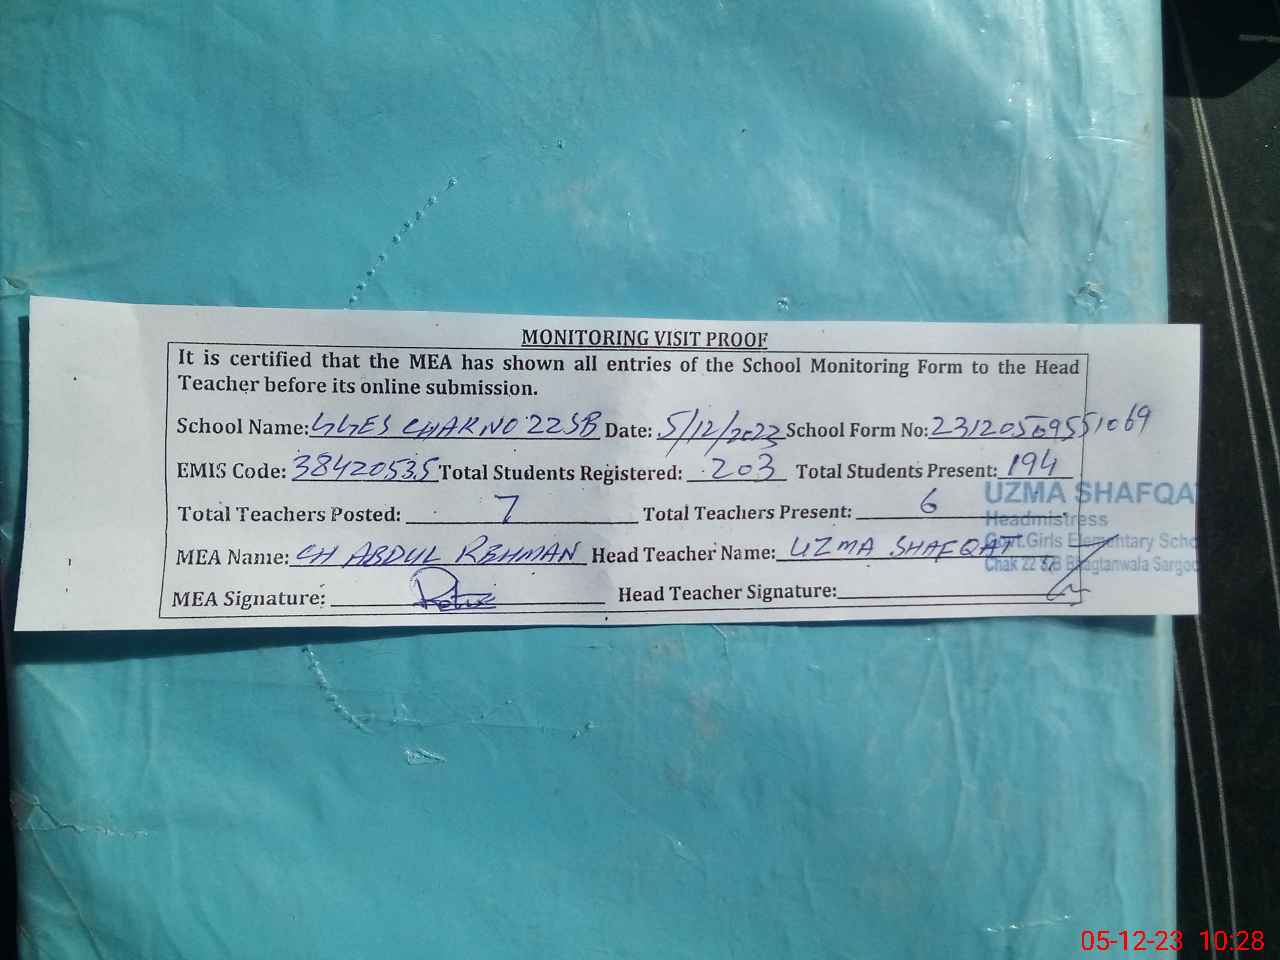 MONITORING VISIT PROOF
It is certified that the MEA has shown all entries of the School Monitoring Form to the Head
Teacher before its online submission.
School Name: GGES CHAK NO 22SB Date: 5/12/2023 School Form No: 23120509551069
EMIS Code: 38420535 Total Students Registered: 203 Total Students Present: 194
Total Teachers Posted: 7 Total Teachers Present: 6
UZMA SHAFQA
Headmistress
Govt.Girls Elementary Scho
Chak 22 S/B Bhagtanwala Sargod
MEA Name: CH ABDUL REHMAN Head Teacher Name: UZMA SHAFQAT
MEA Signature: Head Teacher Signature:
05-12-23 10:28